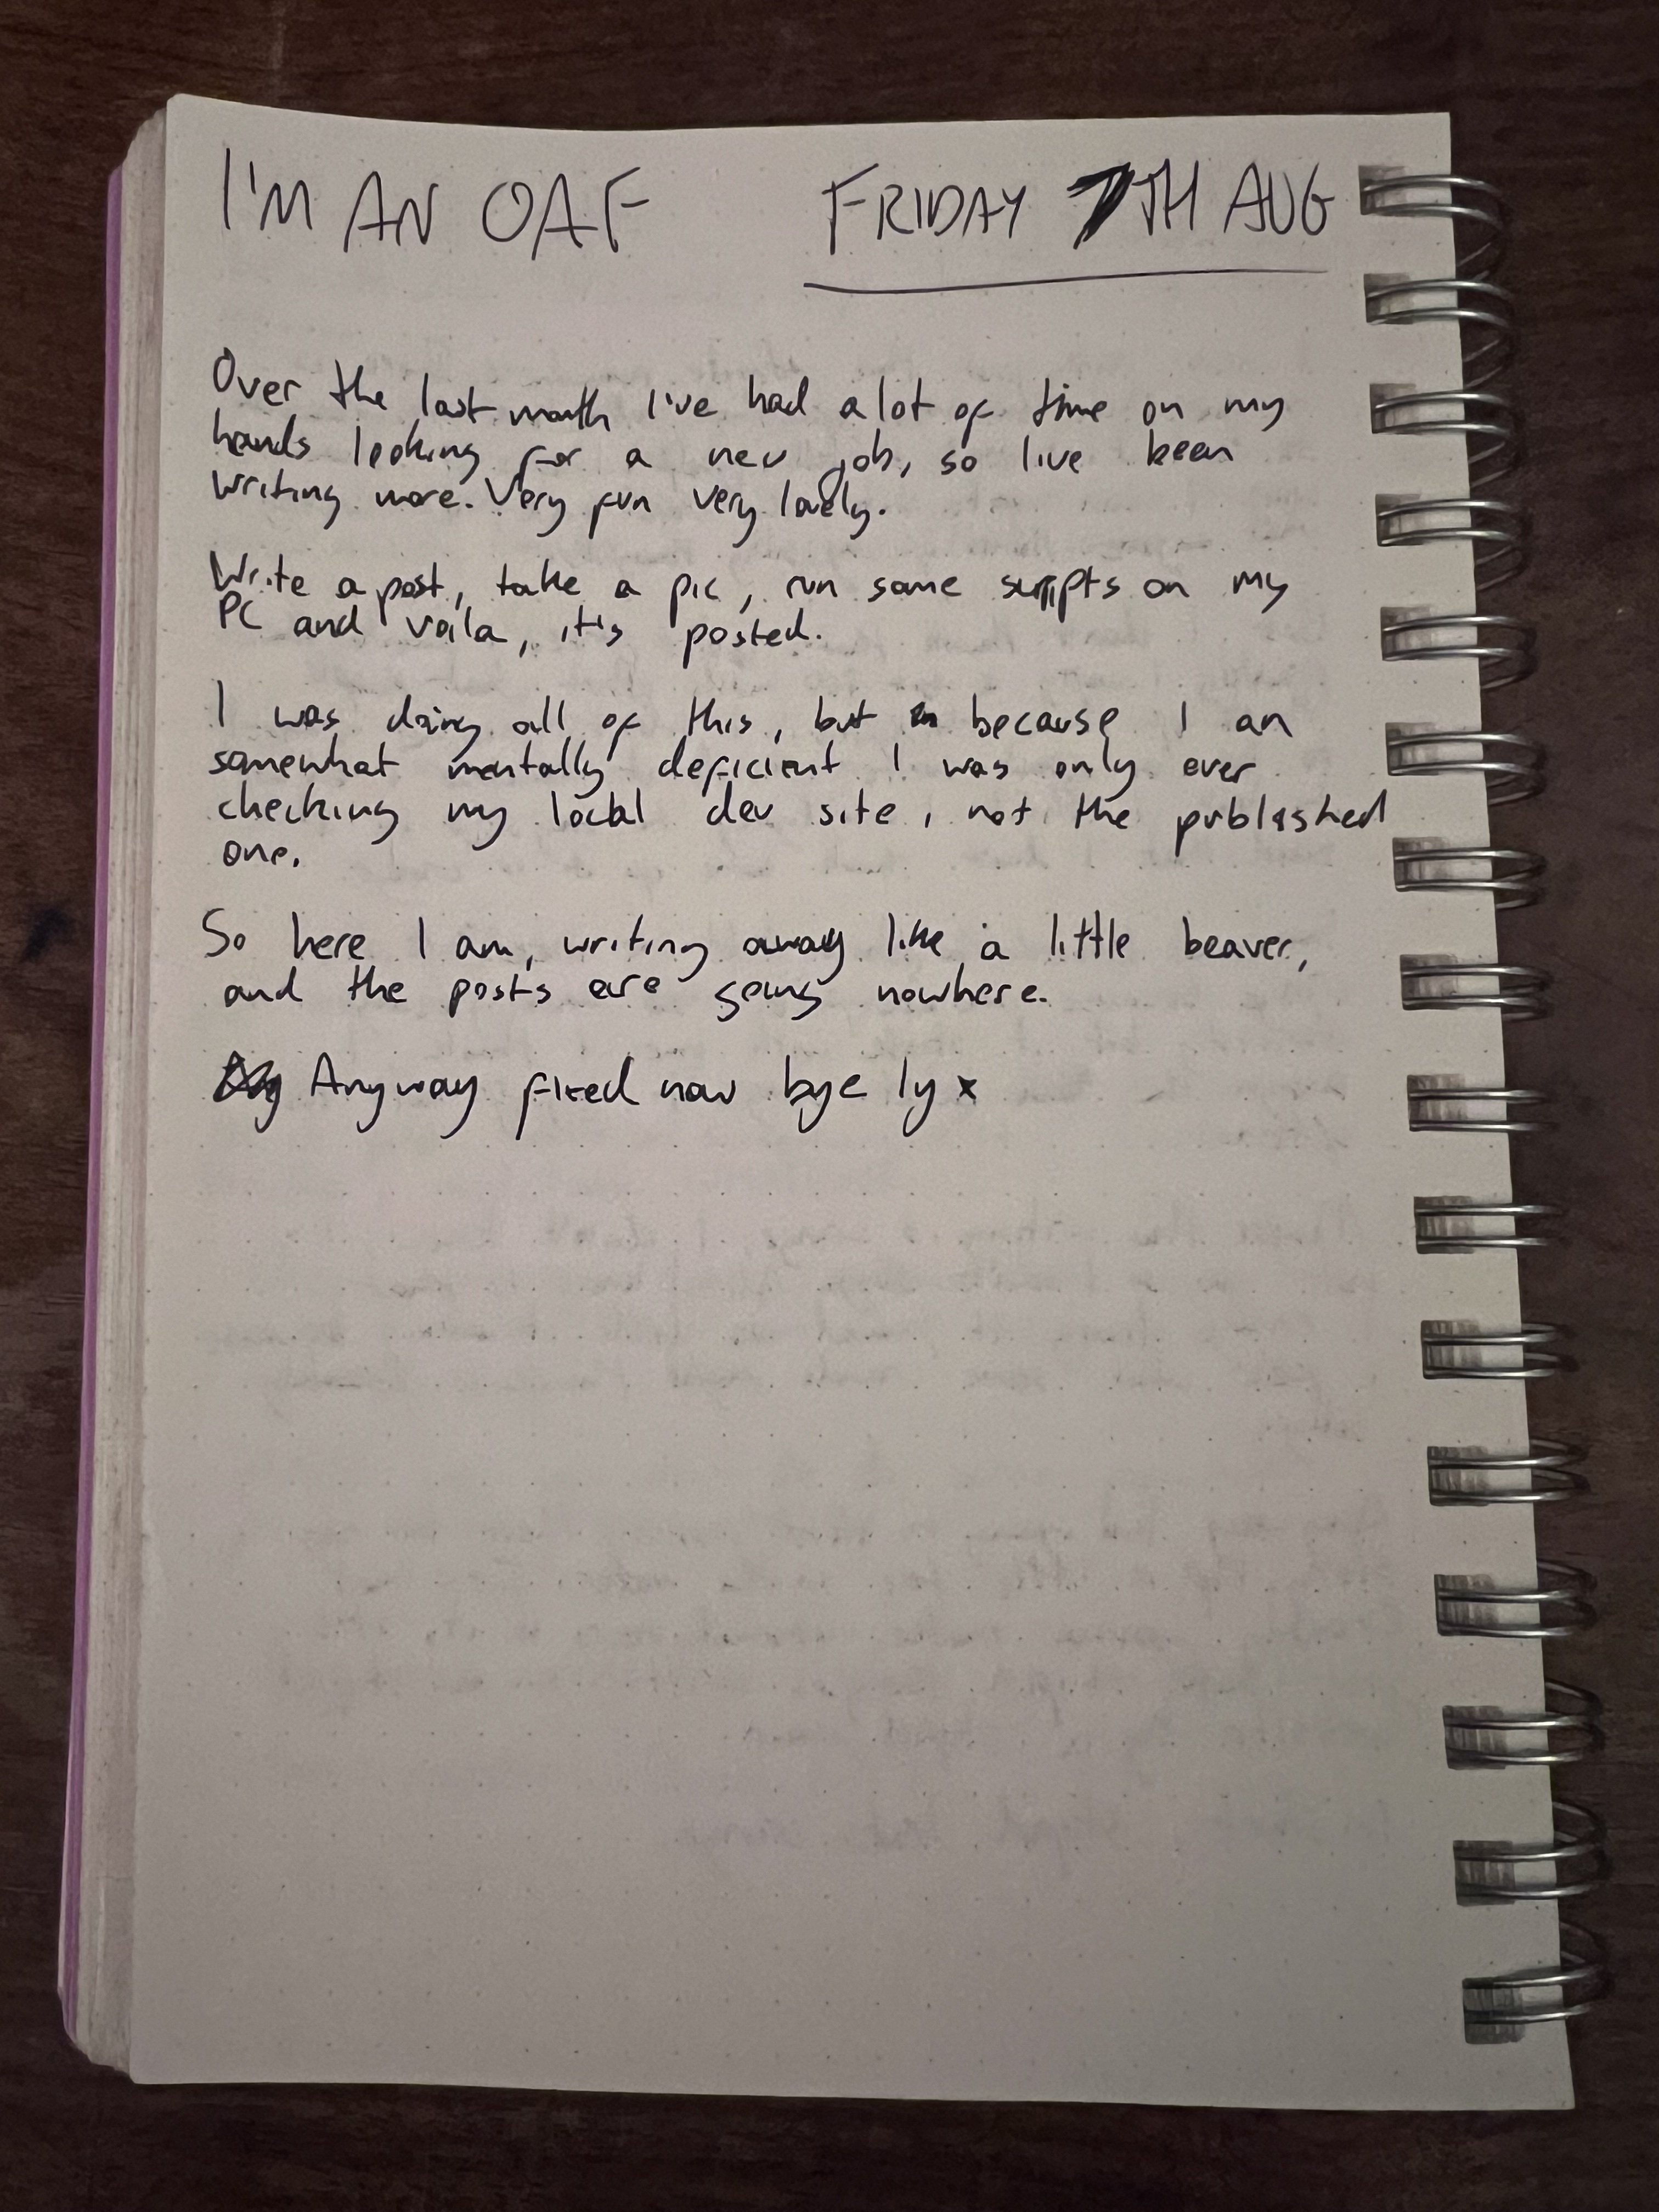 I'M AN OAF FRIDAY 7TH AUG
Over the last month I've had a lot of time on my
hands looking for a new job, so I've been
writing more. Very fun very lovely.
Write a post, take a pic, run some scripts on my
PC and voila, it's posted.
I was doing all of this, but because I am
somewhat mentally deficient I was only ever
checking my local dev site, not the published
one.
So here I am, writing away like a little beaver,
and the posts are going nowhere.
Anyway fixed now bye ly x